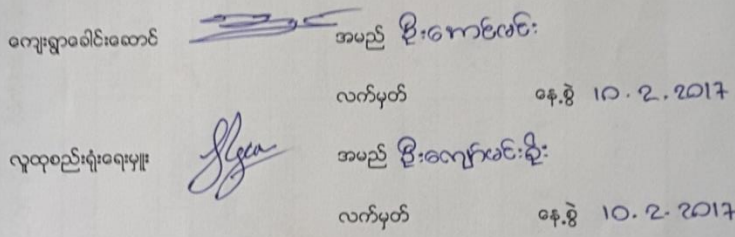 ကျေးရွာခေါင်းဆောင် အမည် ဦးကောင်းမင်း
လက်မှတ် နေ့စွဲ 10.2.2017
လူထုစည်းရုံးရေးမှူး အမည် ဦးကျော်မင်းစိုး
လက်မှတ် နေ့စွဲ 10.2.2017